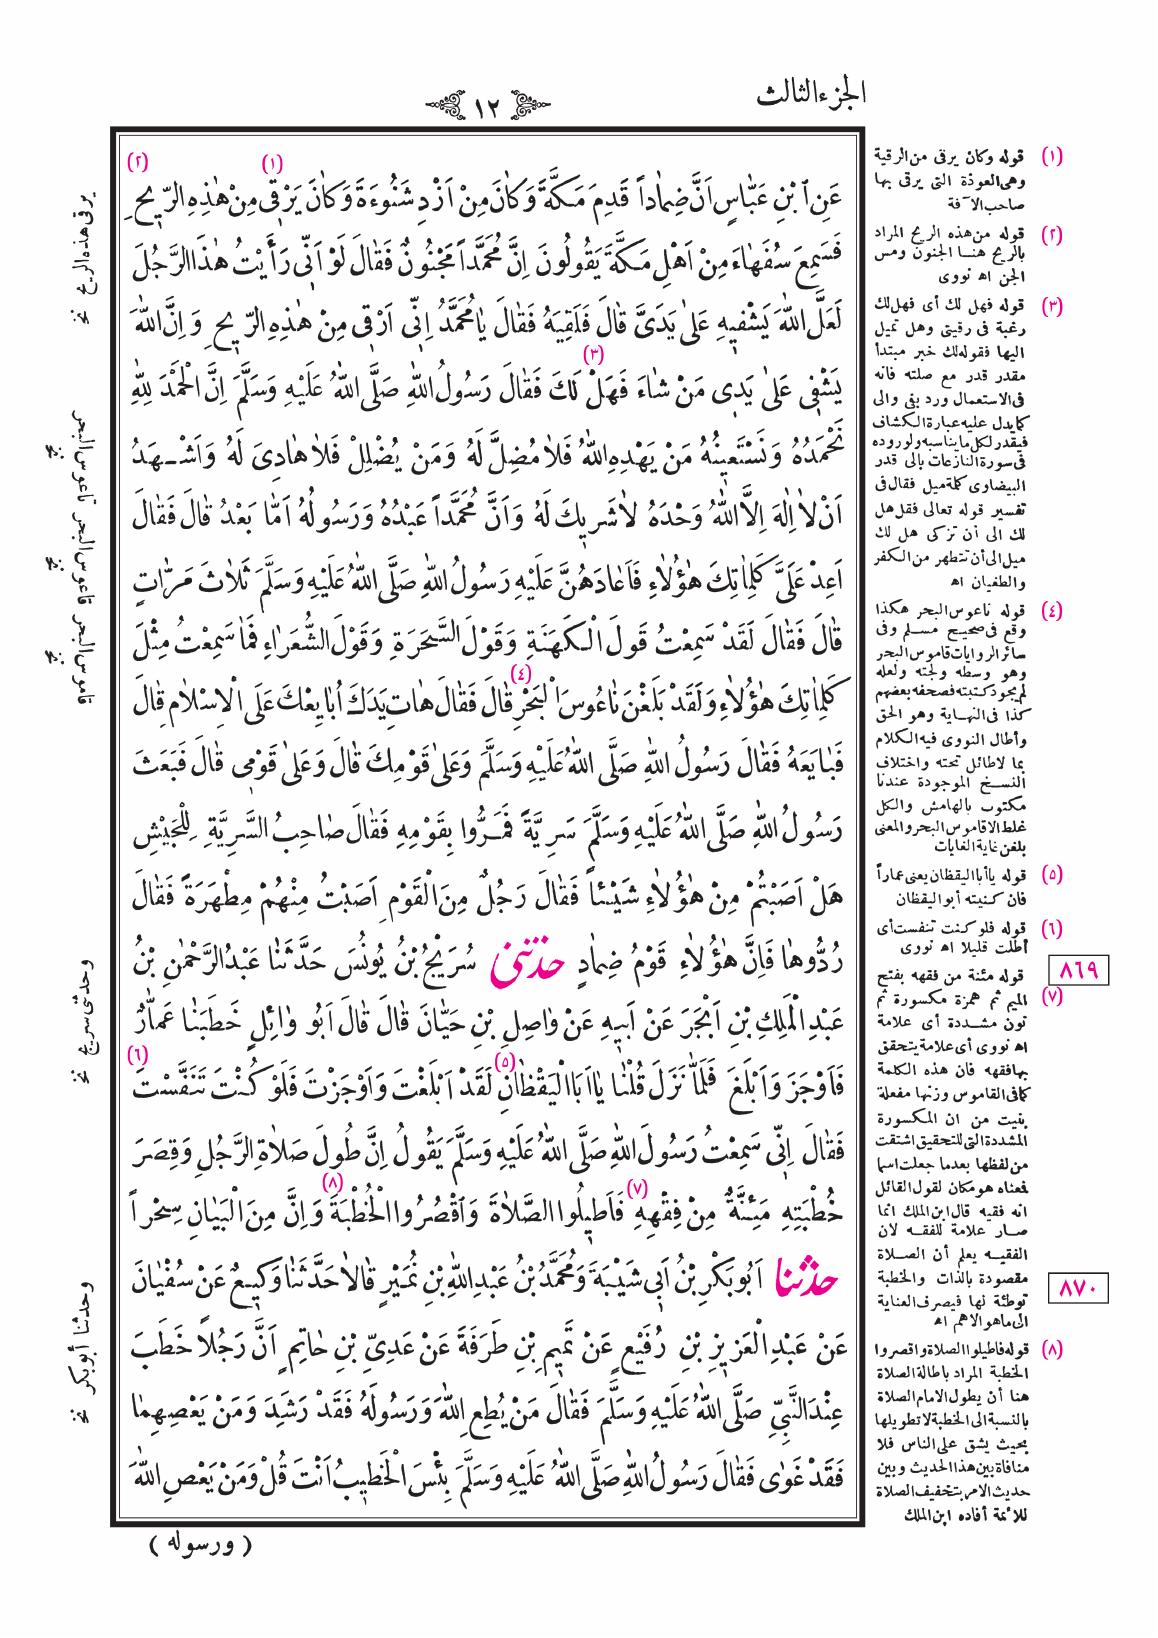 الجزء الثالث
١٢
عَنِ ٱبْنِ عَبَّاسٍ اَنَّ ضِمَاداً قَدِمَ مَكَّةَ وَكَانَ مِنْ اَزْدِ شَنُوءَةَ وَكَانَ يَرْقِى (١) مِنْ هٰذِهِ الرِّيحِ (٢)
فَسَمِعَ سُفَهَاءَ مِنْ اَهْلِ مَكَّةَ يَقُولُونَ اِنَّ مُحَمَّداً مَجْنُونٌ فَقَالَ لَوْ اَنِّى رَأَيْتُ هٰذَا الرَّجُلَ
لَعَلَّ اللّٰهَ يَشْفِيهِ عَلىٰ يَدَىَّ قَالَ فَلَقِيَهُ فَقَالَ يَا مُحَمَّدُ اِنِّى اَرْقِى مِنْ هٰذِهِ الرِّيحِ وَاِنَّ اللّٰهَ
يَشْفِى عَلىٰ يَدِى مَنْ شَاءَ فَهَلْ لَكَ (٣) فَقَالَ رَسُولُ اللّٰهِ صَلَّى اللّٰهُ عَلَيْهِ وَسَلَّمَ اِنَّ الْحَمْدَ لِلّٰهِ
نَحْمَدُهُ وَنَسْتَعِينُهُ مَنْ يَهْدِهِ اللّٰهُ فَلَا مُضِلَّ لَهُ وَمَنْ يُضْلِلْ فَلَا هَادِىَ لَهُ وَاَشْهَدُ
اَنْ لَا اِلٰهَ اِلَّا اللّٰهُ وَحْدَهُ لَا شَرِيكَ لَهُ وَاَنَّ مُحَمَّداً عَبْدُهُ وَرَسُولُهُ اَمَّا بَعْدُ قَالَ فَقَالَ
اَعِدْ عَلَىَّ كَلِمَاتِكَ هٰؤُلَاءِ فَاَعَادَهُنَّ عَلَيْهِ رَسُولُ اللّٰهِ صَلَّى اللّٰهُ عَلَيْهِ وَسَلَّمَ ثَلَاثَ مَرَّاتٍ
قَالَ فَقَالَ لَقَدْ سَمِعْتُ قَوْلَ الْكَهَنَةِ وَقَوْلَ السَّحَرَةِ وَقَوْلَ الشُّعَرَاءِ فَمَا سَمِعْتُ مِثْلَ
كَلِمَاتِكَ هٰؤُلَاءِ وَلَقَدْ بَلَغْنَ نَاعُوسَ الْبَحْرِ (٤) قَالَ فَقَالَ هَاتِ يَدَكَ اُبَايِعْكَ عَلَى الْاِسْلَامِ قَالَ
فَبَايَعَهُ فَقَالَ رَسُولُ اللّٰهِ صَلَّى اللّٰهُ عَلَيْهِ وَسَلَّمَ وَعَلىٰ قَوْمِكَ قَالَ وَعَلىٰ قَوْمِى قَالَ فَبَعَثَ
رَسُولُ اللّٰهِ صَلَّى اللّٰهُ عَلَيْهِ وَسَلَّمَ سَرِيَّةً فَمَرُّوا بِقَوْمِهِ فَقَالَ صَاحِبُ السَّرِيَّةِ لِلْجَيْشِ
هَلْ اَصَبْتُمْ مِنْ هٰؤُلَاءِ شَيْئاً فَقَالَ رَجُلٌ مِنَ الْقَوْمِ اَصَبْتُ مِنْهُمْ مِطْهَرَةً فَقَالَ
رُدُّوهَا فَاِنَّ هٰؤُلَاءِ قَوْمُ ضِمَادٍ حَدَّثَنِى سُرَيْجُ بْنُ يُونُسَ حَدَّثَنَا عَبْدُ الرَّحْمٰنِ بْنُ
عَبْدِ الْمَلِكِ بْنِ اَبْجَرَ عَنْ اَبِيهِ عَنْ وَاصِلِ بْنِ حَيَّانَ قَالَ قَالَ اَبُو وَائِلٍ خَطَبَنَا عَمَّارٌ
فَاَوْجَزَ وَاَبْلَغَ فَلَمَّا نَزَلَ قُلْنَا يَا اَبَا الْيَقْظَانِ (٥) لَقَدْ اَبْلَغْتَ وَاَوْجَزْتَ فَلَوْ كُنْتَ تَنَفَّسْتَ (٦)
فَقَالَ اِنِّى سَمِعْتُ رَسُولَ اللّٰهِ صَلَّى اللّٰهُ عَلَيْهِ وَسَلَّمَ يَقُولُ اِنَّ طُولَ صَلَاةِ الرَّجُلِ وَقِصَرَ
خُطْبَتِهِ مَئِنَّةٌ مِنْ فِقْهِهِ (٧) فَاَطِيلُوا الصَّلَاةَ وَاقْصُرُوا الْخُطْبَةَ (٨) وَاِنَّ مِنَ الْبَيَانِ سِحْراً
حَدَّثَنَا اَبُو بَكْرِ بْنُ اَبِى شَيْبَةَ وَمُحَمَّدُ بْنُ عَبْدِ اللّٰهِ بْنِ نُمَيْرٍ قَالَا حَدَّثَنَا وَكِيعٌ عَنْ سُفْيَانَ
عَنْ عَبْدِ الْعَزِيزِ بْنِ رُفَيْعٍ عَنْ تَمِيمِ بْنِ طَرَفَةَ عَنْ عَدِىِّ بْنِ حَاتِمٍ اَنَّ رَجُلاً خَطَبَ
عِنْدَ النَّبِىِّ صَلَّى اللّٰهُ عَلَيْهِ وَسَلَّمَ فَقَالَ مَنْ يُطِعِ اللّٰهَ وَرَسُولَهُ فَقَدْ رَشَدَ وَمَنْ يَعْصِهِمَا
فَقَدْ غَوٰى فَقَالَ رَسُولُ اللّٰهِ صَلَّى اللّٰهُ عَلَيْهِ وَسَلَّمَ بِئْسَ الْخَطِيبُ اَنْتَ قُلْ وَمَنْ يَعْصِ اللّٰهَ
( ورسوله )
(١) قوله وكان يرقى من الرقية
وهى العوذة التى يرقى بها
صاحب الآفة
(٢) قوله من هذه الريح المراد
بالريح هنا الجنون ومس
الجن اه نووى
(٣) قوله فهل لك أى فهل لك
رغبة فى رقيتى وهل تميل
اليها فقوله لك خبر مبتدأ
مقدر قدر مع صلته فانه
فى الاستعمال ورد بفى والى
كما يدل عليه عبارة الكشاف
فيقدر لكل ما يناسبه ولوروده
فى سورة النازعات بالى قدر
البيضاوى كلمة ميل فقال فى
تفسير قوله تعالى فقل هل
لك الى أن تزكى هل لك
ميل الى أن تتطهر من الكفر
والطغيان اه
(٤) قوله ناعوس البحر هكذا
وقع فى صحيح مسلم وفى
سائر الروايات قاموس البحر
وهو وسطه ولجته ولعله
لم يجود كتبته فصحفه بعضهم
كذا فى النهاية وهو الحق
وأطال النووى فيه الكلام
بما لا طائل تحته واختلاف
النسخ الموجودة عندنا
مكتوب بالهامش والكل
غلط الا قاموس البحر والمعنى
بلغن غاية الغايات
(٥) قوله يا أبا اليقظان يعنى عماراً
فان كنيته أبو اليقظان
(٦) قوله فلو كنت تنفست أى
أطلت قليلا اه نووى
٨٦٩
(٧) قوله مئنة من فقهه بفتح
الميم ثم همزة مكسورة ثم
نون مشددة أى علامة
اه نووى أى علامة يتحقق
بها فقهه فان هذه الكلمة
كما فى القاموس وزنها مفعلة
بنيت من ان المكسورة
المشددة التى للتحقيق اشتقت
من لفظها بعدما جعلت اسما
فمعناه هو مكان لقول القائل
انه فقيه قال ابن الملك انما
صار علامة للفقه لان
الفقيه يعلم أن الصلاة
مقصودة بالذات والخطبة
توطئة لها فيصرف العناية
الى ما هو الاهم اه
٨٧٠
(٨) قوله فاطيلوا الصلاة واقصروا
الخطبة المراد باطالة الصلاة
هنا أن يطول الامام الصلاة
بالنسبة الى الخطبة لا تطويلها
بحيث يشق على الناس فلا
منافاة بين هذا الحديث وبين
حديث الامر بتخفيف الصلاة
للأئمة أفاده ابن الملك
يرقى هذه الريح نخ
تاعوس البحر نخ
قاعوس البحر نخ
قاموس البحر نخ
وحدثنى سريج نخ
وحدثنا أبوبكر نخ